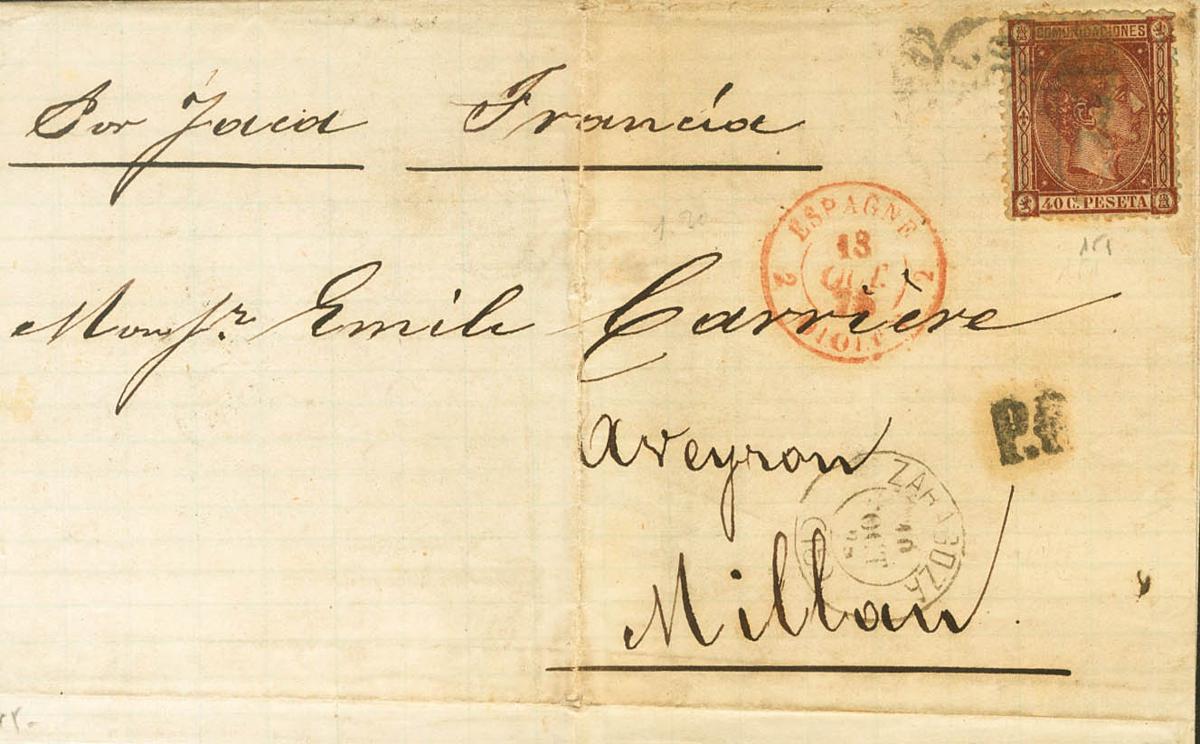 COMUNICACIONES
40 C. PESETA
Por Jaca Francia
1.20
ESPAGNE
13
OCT
2 2
Monsr. Emile Carrière
Aveyron
ZARAGOZA
10
OCT
Millau